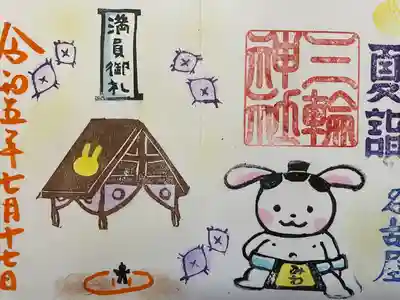 夏詣
名古屋
三輪
神社
みわ
満員御札
令和五年七月十七日